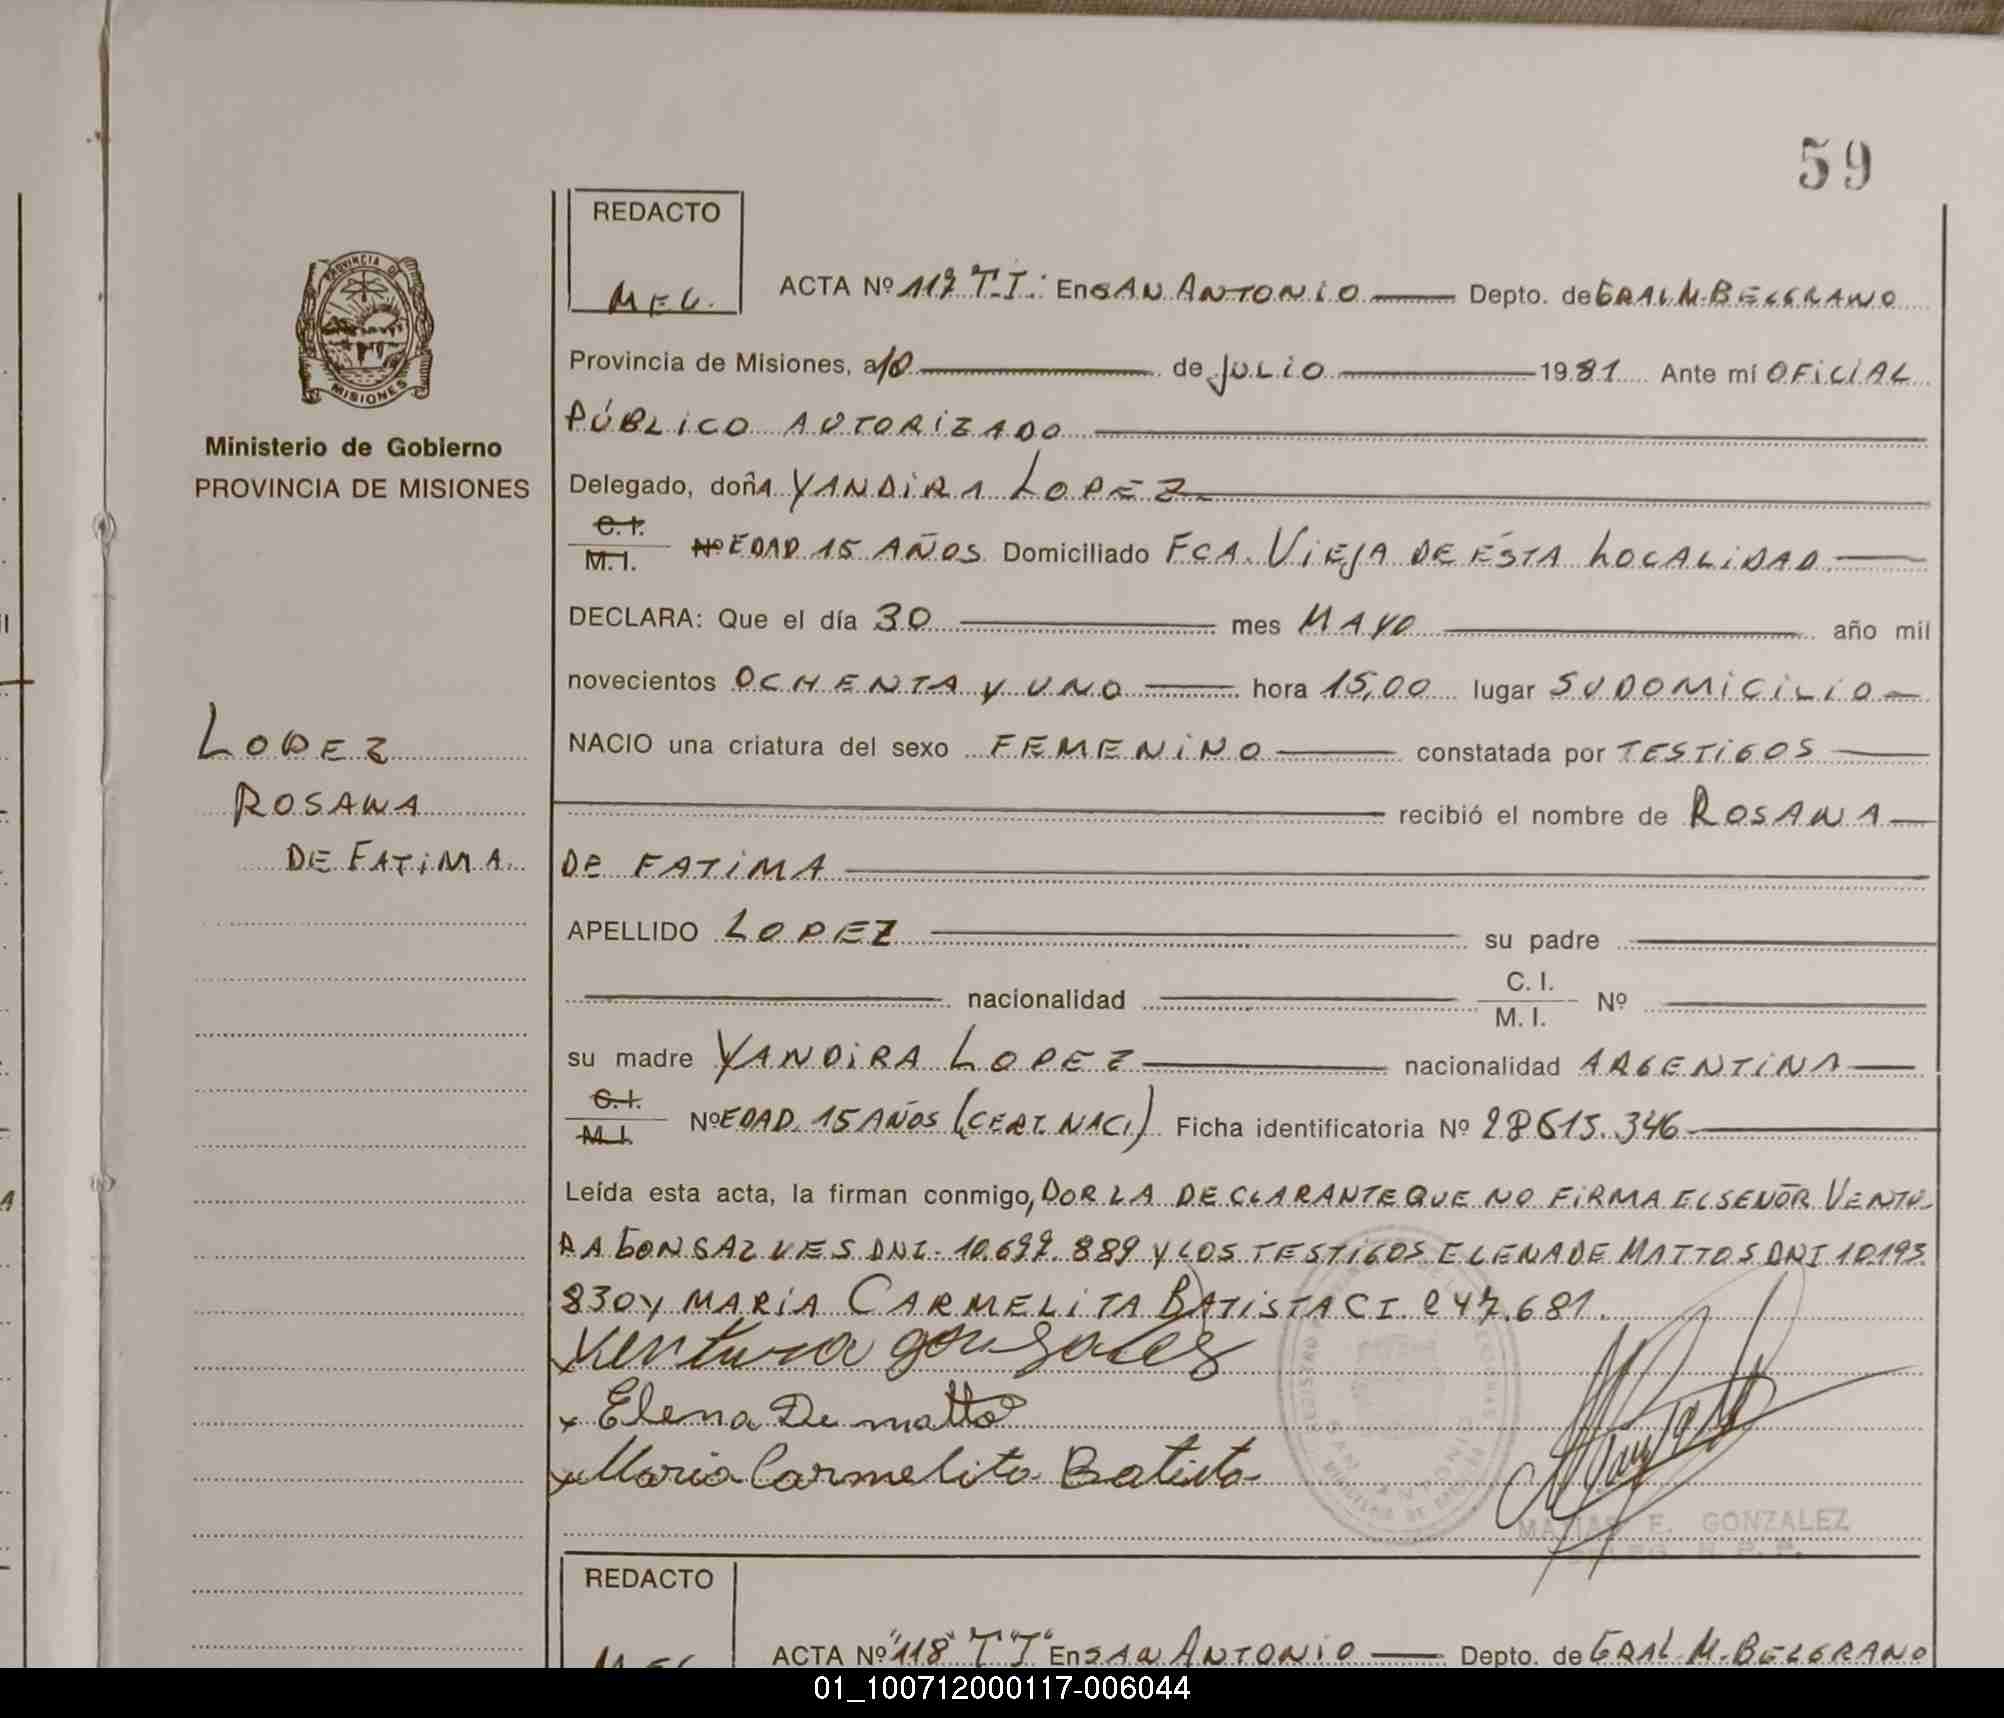 59
REDACTO
MEG.
ACTA Nº 117 T. I. En SAN ANTONIO Depto. de GRAL M. BELGRANO
PROVINCIA DE
MISIONES
Provincia de Misiones, a 10 de JULIO 1981 Ante mí OFICIAL
PÚBLICO AUTORIZADO
Ministerio de Gobierno
PROVINCIA DE MISIONES
Delegado, doñA YANDIRA LOPEZ
C. I.
M. I. Nº EDAD 15 AÑOS Domiciliado FCA. VIEJA DE ÉSTA LOCALIDAD
DECLARA: Que el día 30 mes MAYO año mil
novecientos OCHENTA Y UNO hora 15,00 lugar SU DOMICILIO
NACIO una criatura del sexo FEMENINO constatada por TESTIGOS
LOPEZ
ROSANA
DE FATIMA
recibió el nombre de ROSANA
DE FATIMA
APELLIDO LOPEZ su padre
nacionalidad C. I.
M. I. Nº
su madre YANDIRA LOPEZ nacionalidad ARGENTINA
C. I.
M. I. Nº EDAD 15 AÑOS (CERT. NACI) Ficha identificatoria Nº 28615.346
Leída esta acta, la firman conmigo, POR LA DECLARANTE QUE NO FIRMA EL SEÑOR VENTU-
RA GONSALVES DNI. 10.697.889 Y LOS TESTIGOS ELENA DE MATTOS DNI 10.193.
830 Y MARIA CARMELITA BATISTA CI 247.681.
x Ventura gonsalves
x Elena De matto
x Maria Carmelita Batista
MATIAS E. GONZALEZ
REDACTO
MEG
ACTA Nº "118" T "I" En SAN ANTONIO Depto. de GRAL M. BELGRANO
01_100712000117-006044